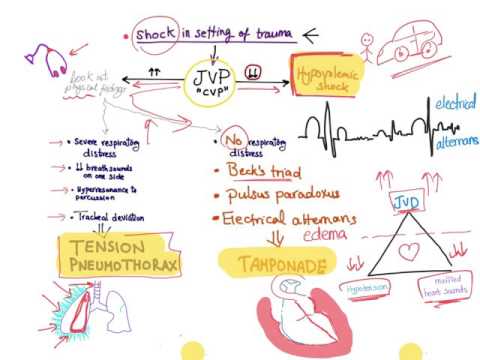 • Shock in setting of trauma
↑↑
JVP
"CVP"
↓↓
Hypovolemic
shock
look at
physical findings
electrical
alternans
• Severe respiratory
distress
• ↓↓ breath sounds
on one side
• Hyperresonance to
percussion
• Tracheal deviation
TENSION
PNEUMOTHORAX
• No respiratory
distress
• Beck's triad
• Pulsus paradoxus
• Electrical alternans
edema
TAMPONADE
JVD
Hypotension
muffled
heart sounds